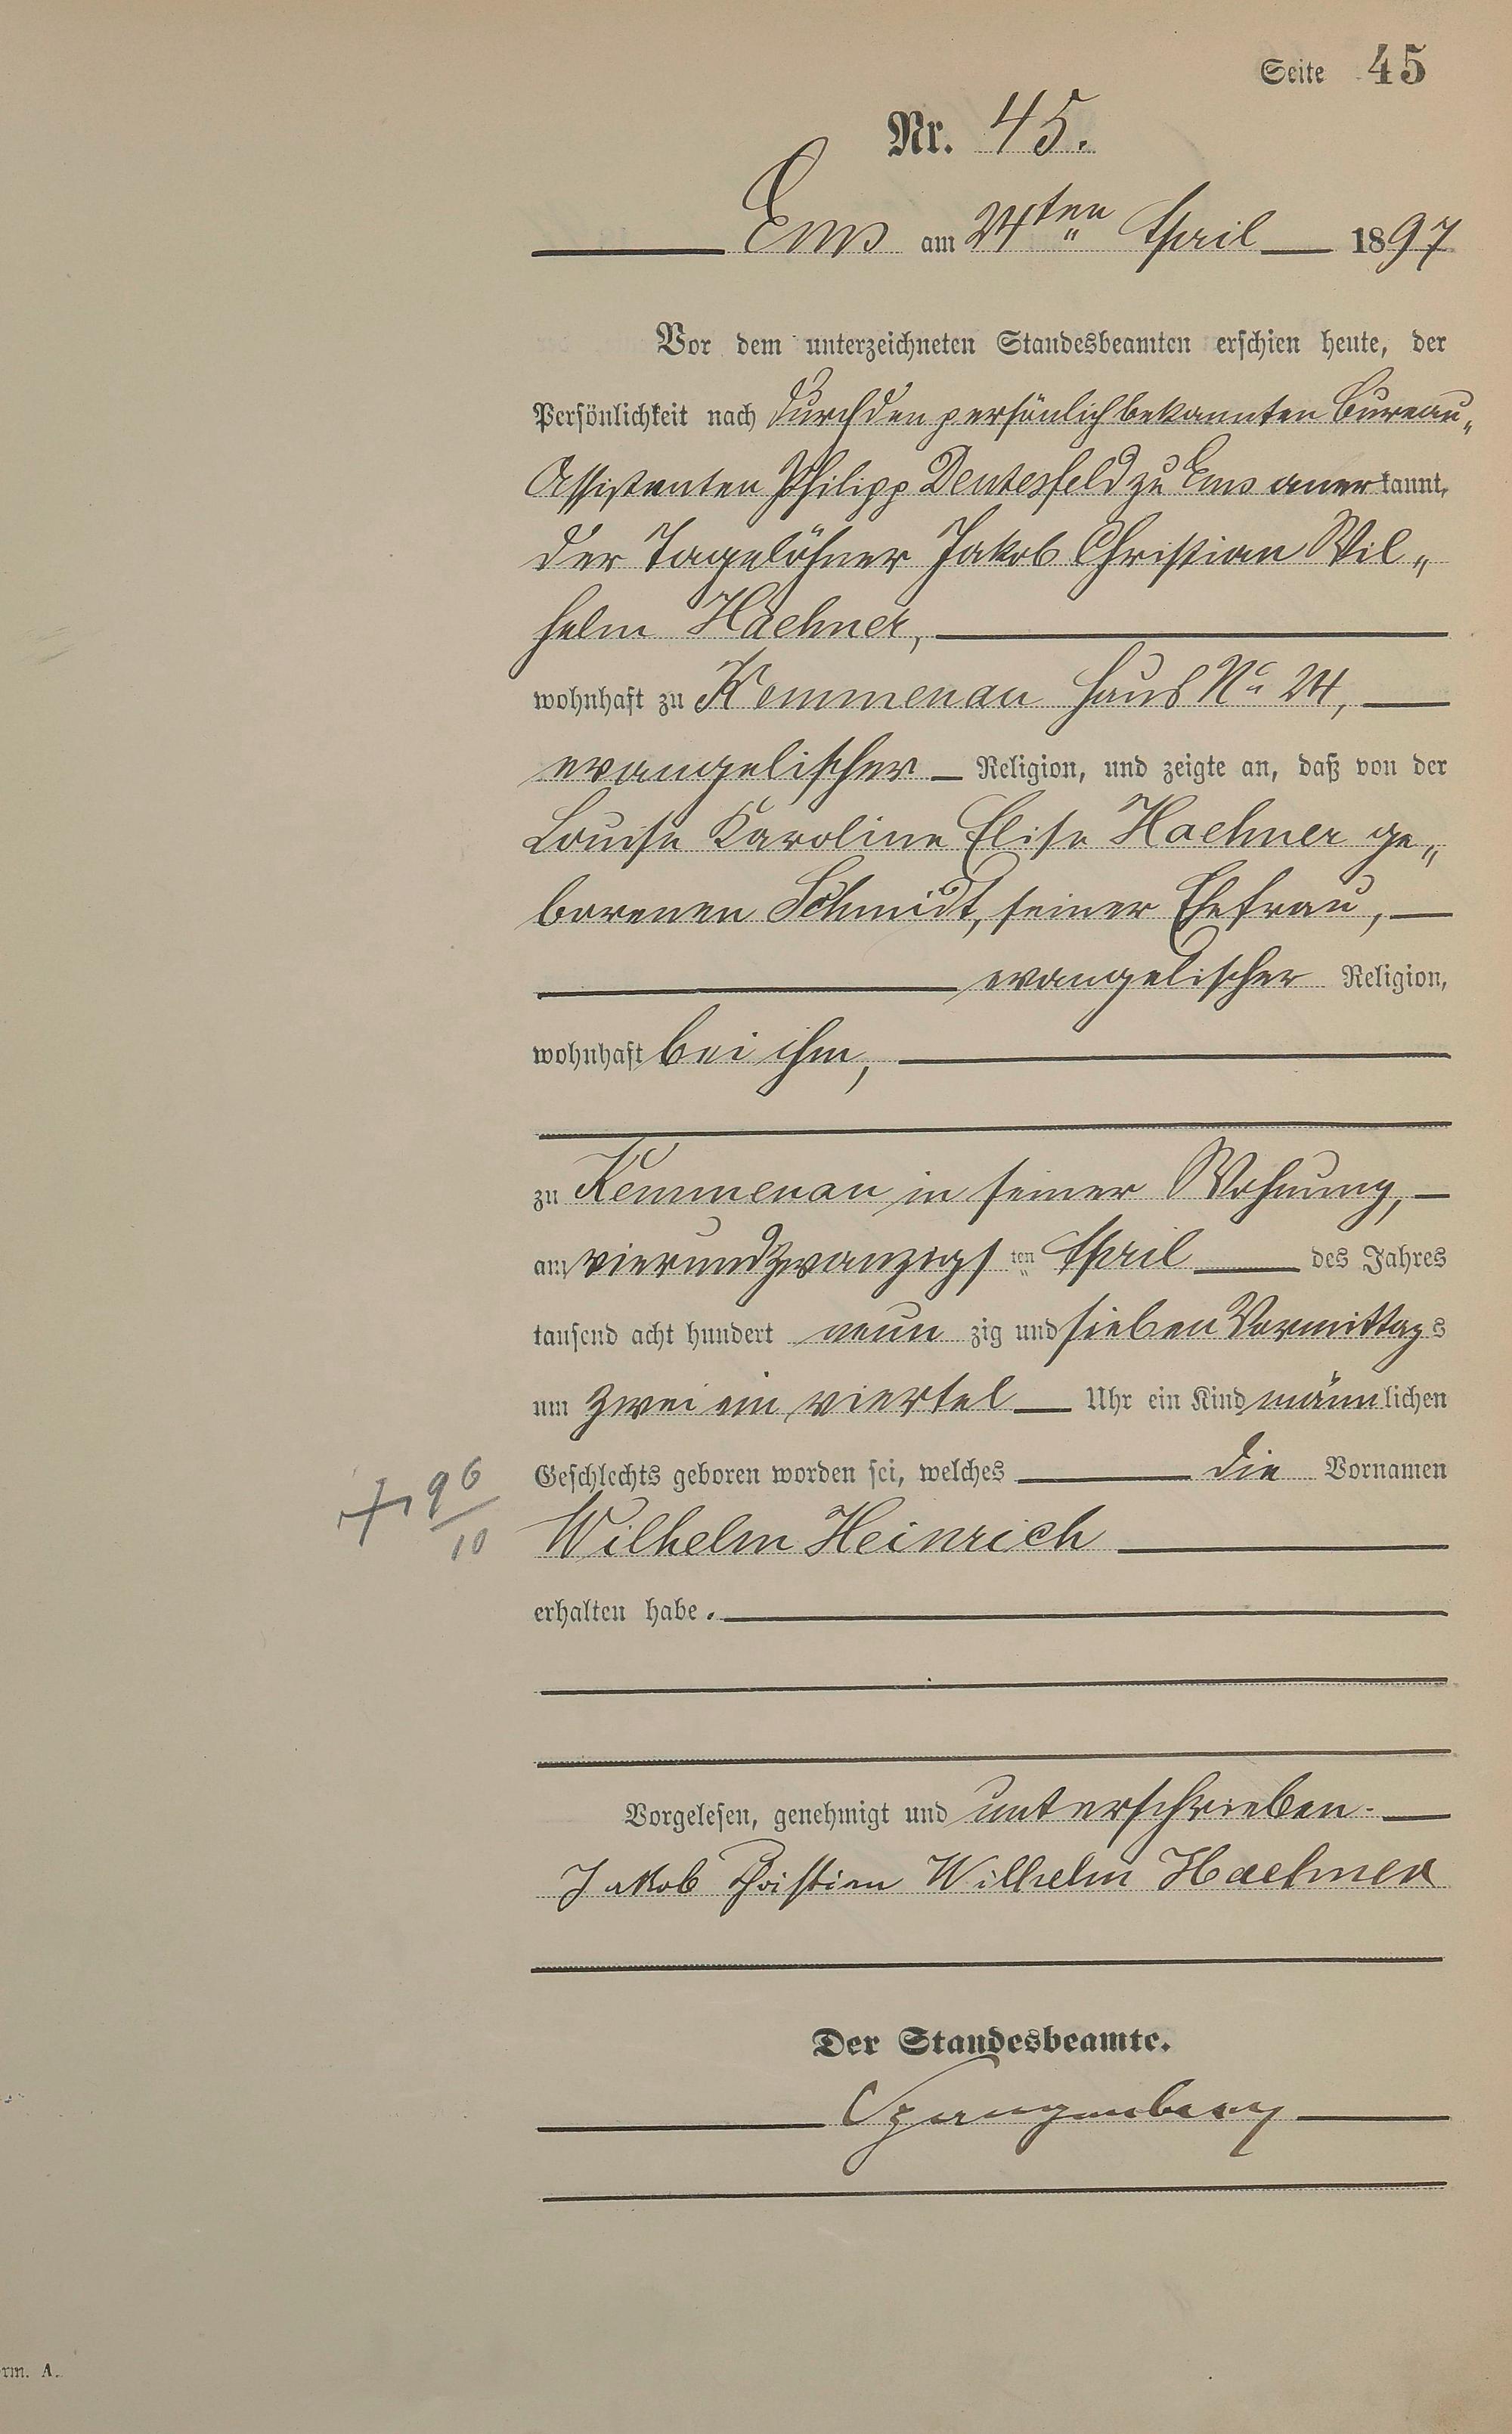 Seite 45
Nr. 45.
Ems am 24ten April 1897
Vor dem unterzeichneten Standesbeamten erschien heute, der
Persönlichkeit nach durch den persönlich bekannten Bureau„
Assistenten Philipp Deutesfeld zu Ems anerkannt,
der Tagelöhner Jakob Christian Wil„
helm Haehner,
wohnhaft zu Kemmenau Haus No 24,
evangelischer Religion, und zeigte an, daß von der
Louise Karoline Elise Haehner ge„
borenen Schmidt, seiner Ehefrau,
evangelischer Religion,
wohnhaft bei ihm,
zu Kemmenau in seiner Wohnung,
am vierundzwanzigsten April des Jahres
tausend acht hundert neunzig und sieben Vormittags
um zwei ein viertel Uhr ein Kind männlichen
Geschlechts geboren worden sei, welches die Vornamen
+ 96/10
Wilhelm Heinrich
erhalten habe.
Vorgelesen, genehmigt und unterschrieben.
Jakob Christian Wilhelm Haehner
Der Standesbeamte.
Spangenberg
rm. A.